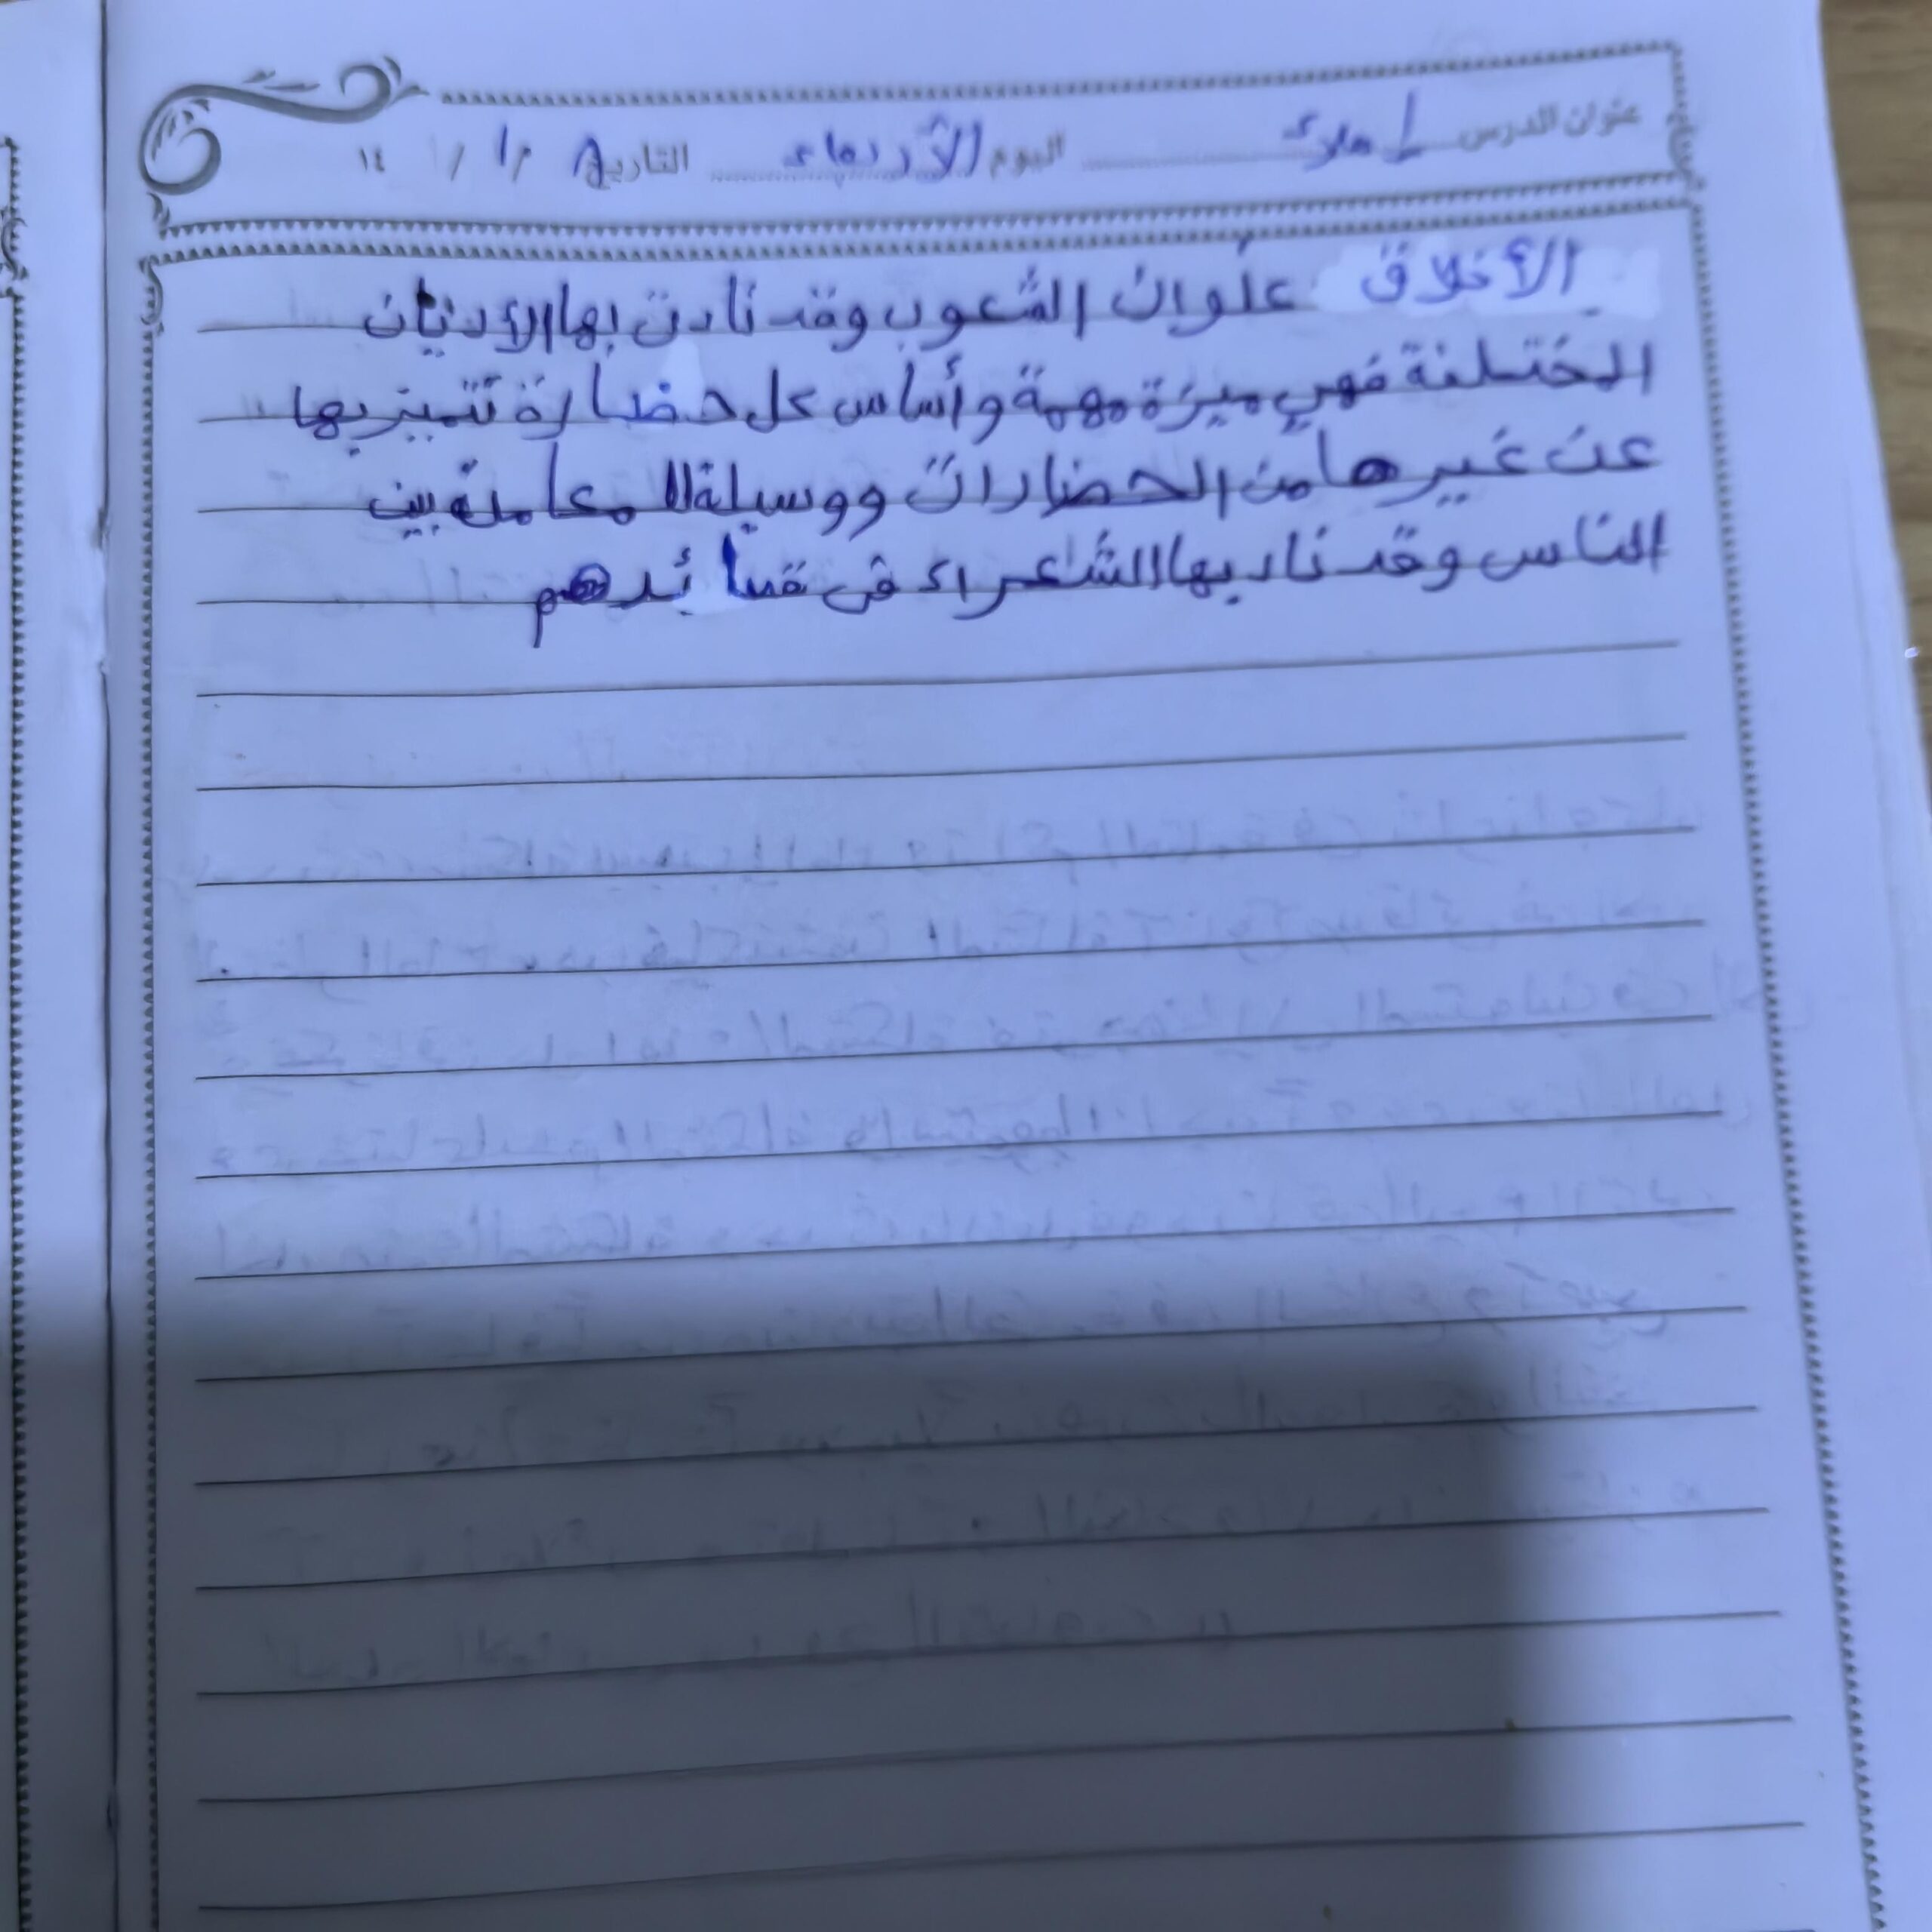 عنوان الدرس إملاء اليوم الأربعاء التاريخ ٨ / ١ / ١٤
الأخلاق عنوان الشعوب وقد نادت بها الأديان
المختلفة فهي ميزة مهمة وأساس كل حضارة تتميز بها
عن غيرها من الحضارات ووسيلة للمعاملة بين
الناس وقد ناد بها الشعراء في قصائدهم